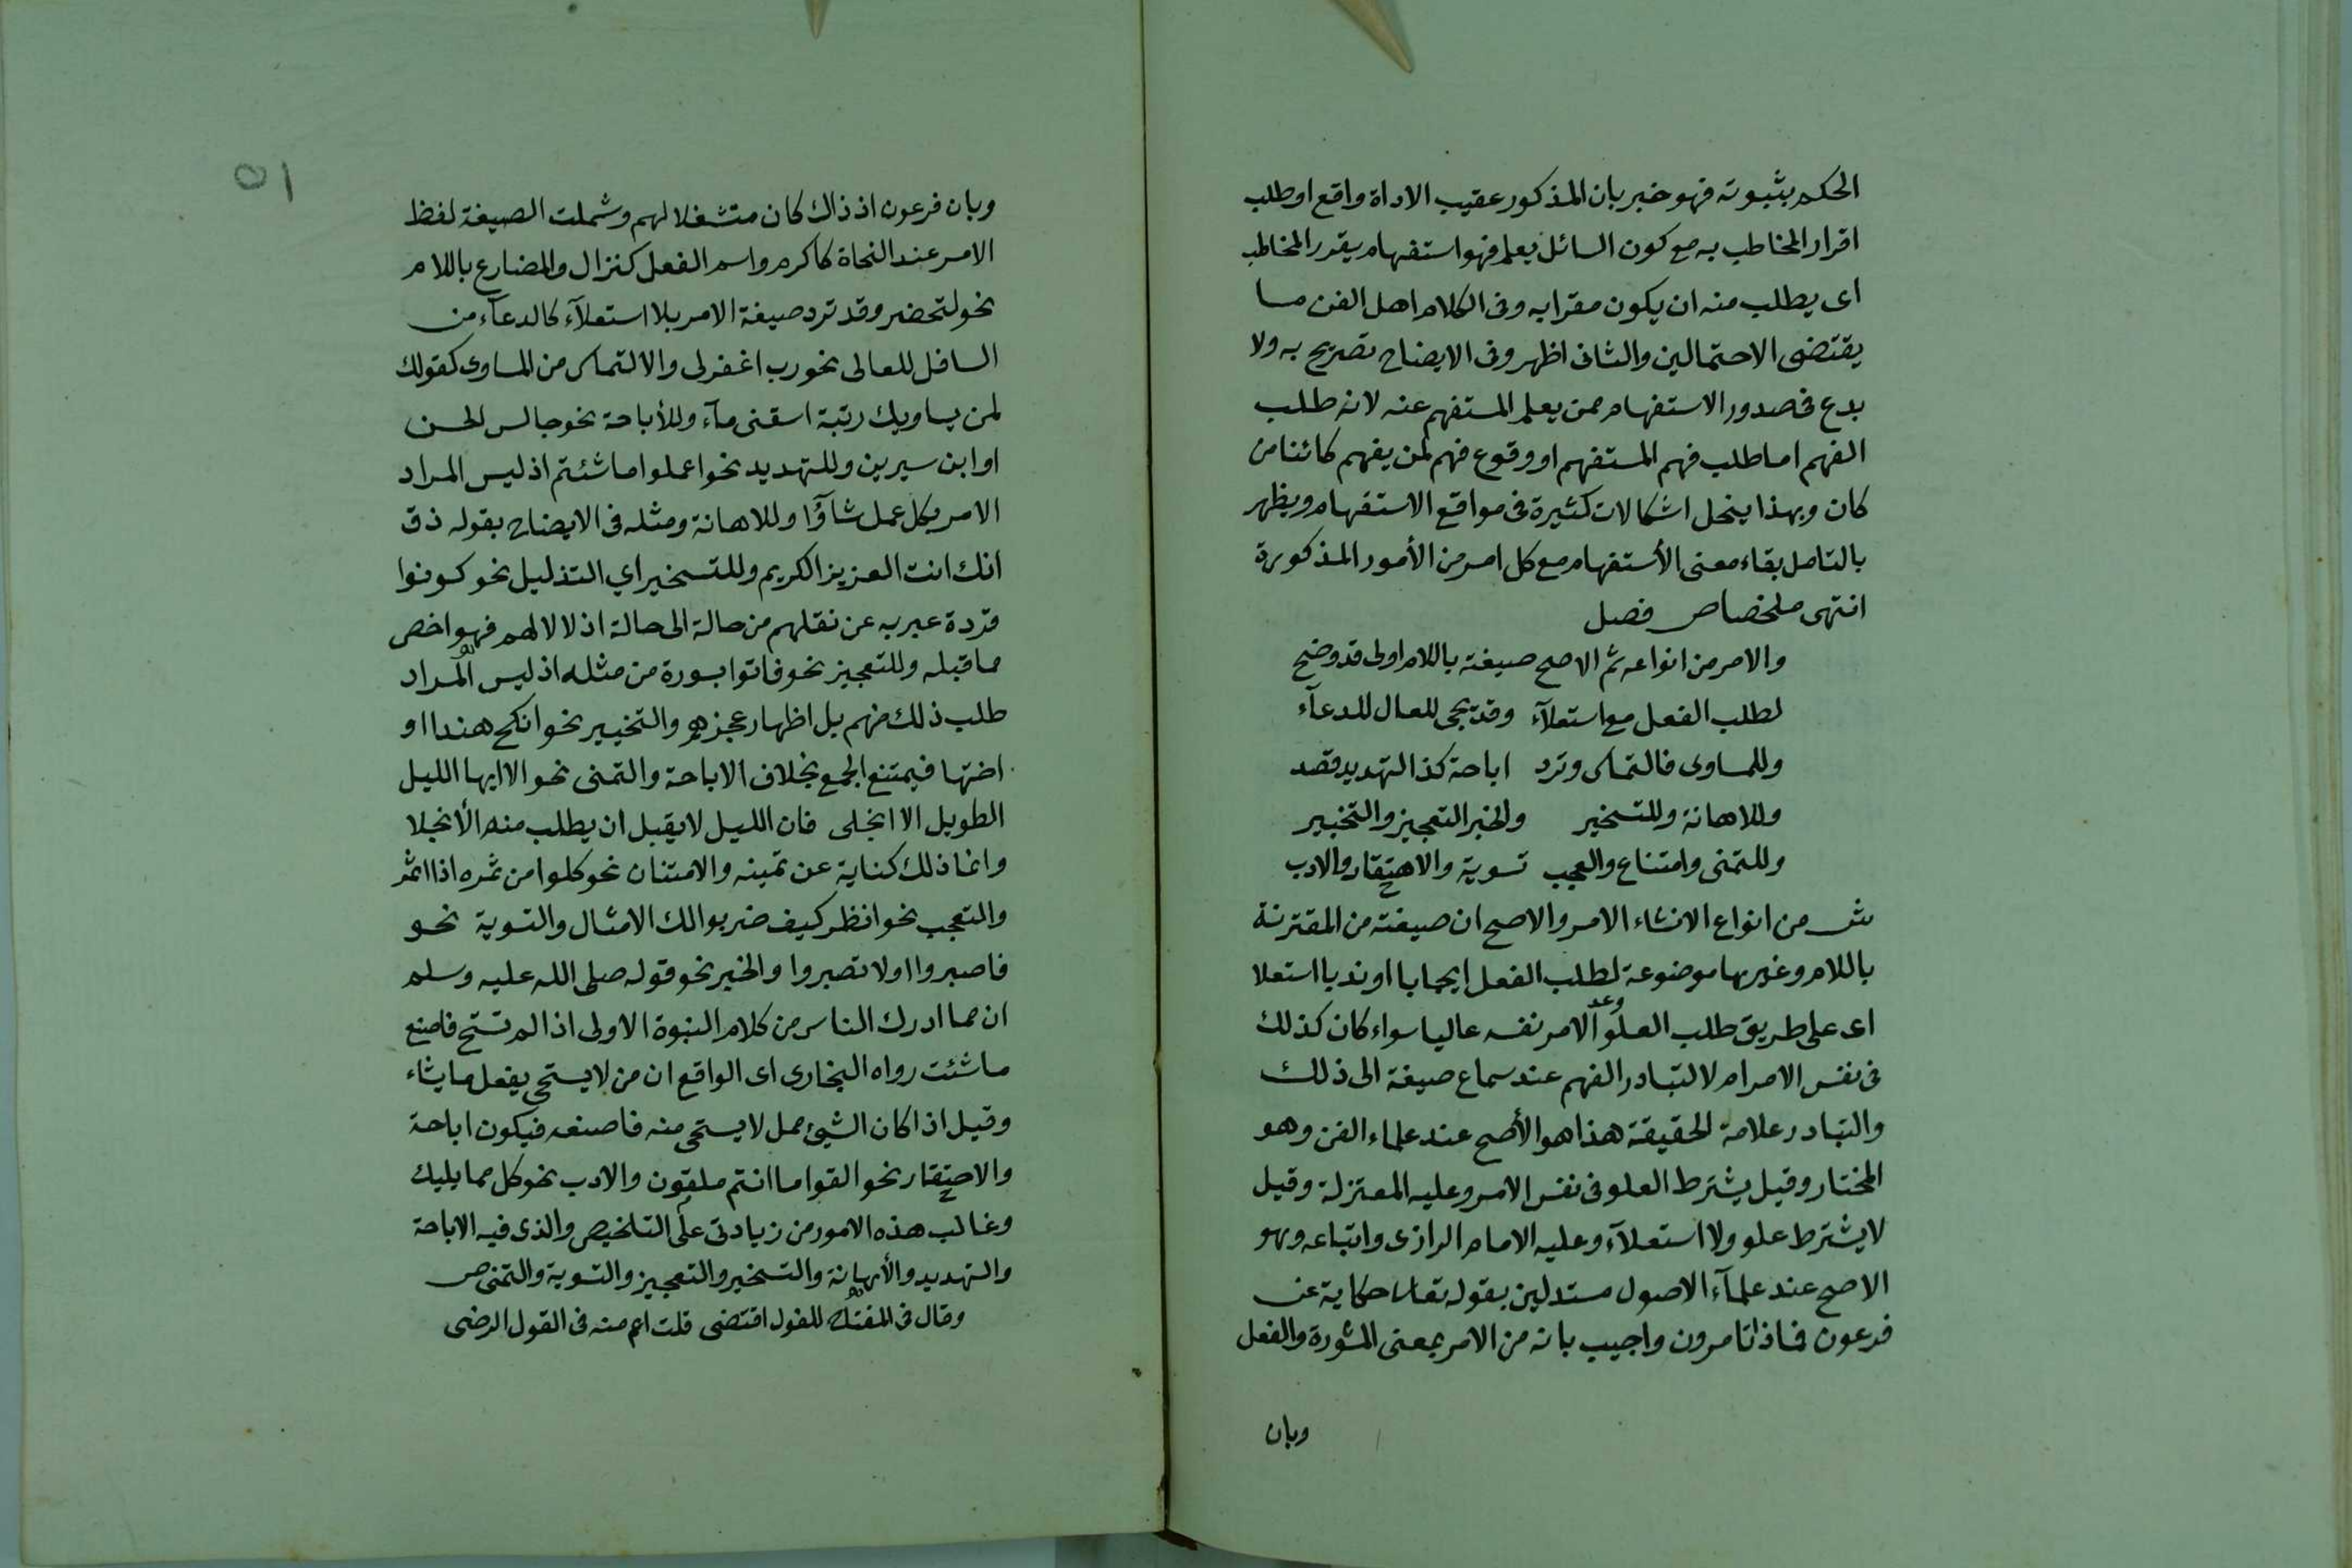 الحكم بثبوته فهو خبر بان المذكور عقيب الاداة واقع او طلب
اقرار المخاطب به مع كون السائل يعلم فهو استفهام يقرر المخاطب
اى يطلب منه ان يكون مقرا به وفى الكلام اهل الفن ما
يقتضى الاحتمالين والثانى اظهر وفى الايضاح تصريح به ولا
بدع فى صدور الاستفهام ممن يعلم المستفهم عنه لانه طلب
الفهم اما طلب فهم المستفهم او وقوع فهم لمن يفهم كائنا من
كان وبهذا ينحل اشكالات كثيرة فى مواقع الاستفهام ويظهر
بالتامل بقاء معنى الأستفهام مع كل امر من الأمور المذكورة
انتهى ملخصا ص فصل
والامر من انواعه ثم الاصح صيغته باللام اولى قد وضح
لطلب الفعل مع استعلآء وقد يجى للعال للدعآء
وللمساوى فالتماس وترد اباحة كذا التهديد قصد
وللاهانة وللتسخير والخبر التعجيز والتخيير
وللتمنى وامتناع والعجب تسوية والاحتقار والادب
ش من انواع الانشاء الامر والاصح ان صيغته من المقترنة
باللام وغيرها موضوعة لطلب الفعل ايجابا او ندبا استعلا
اى على طريق طلب العلو وعد الامر نفسه عاليا سواء كان كذلك
فى نفس الامر ام لا لتبادر الفهم عند سماع صيغة الى ذلك
والتبادر علامة الحقيقة هذا هو الأصح عند علماء الفن وهو
المختار وقيل يشترط العلو فى نفس الامر وعليه المعتزلة وقيل
لا يشترط علو ولا استعلآء وعليه الامام الرازى واتباعه وهو
الاصح عند علمآء الاصول مستدلين بقوله تعالى حكاية عن
فرعون فماذا تامرون واجيب بانه من الامر بمعنى المشورة والفعل
وبان
٥١
وبان فرعون اذ ذاك كان متشغلا لهم وشملت الصيغة لفظ
الامر عند النحاة كاكرم واسم الفعل كنزال والمضارع باللام
نحو لتحضر وقد ترد صيغة الامر بلا استعلآء كالدعآء من
السافل للعالى نحو رب اغفرلى والالتماس من المساوى كقولك
لمن يساويك رتبة اسقنى مآء وللأباحة نحو جالس الحسن
او ابن سيرين وللتهديد نحو اعملوا ما شئتم اذ ليس المراد
الامر بكل عمل شآؤا وللاهانة ومثله فى الايضاح بقوله ذق
انك انت العزيز الكريم وللتسخير اي التذليل نحو كونوا
قردة عبر به عن نقلهم من حالة الى حالة اذلالا لهم فهو اخص
مما قبله وللتعجيز نحو فاتوا بسورة من مثله اذ ليس المراد
طلب ذلك منهم بل اظهار عجزهم والتخيير نحو انكح هندا او
اختها فيمتنع الجمع بخلاف الاباحة والتمنى نحو الا ايها الليل
الطويل الا انجلى فان الليل لا يقبل ان يطلب منه الأنجلا
وانما ذلك كناية عن تمينه والامتنان نحو كلوا من ثمره اذا اثمر
والتعجب نحو انظر كيف ضربوا لك الامثال والتسوية نحو
فاصبروا اولا تصبروا والخبر نحو قوله صلى الله عليه وسلم
ان مما ادرك الناس من كلام النبوة الاولى اذا لم تستح فاصنع
ما شئت رواه البخارى اى الواقع ان من لا يستحى يفعل ما يشاء
وقيل اذا كان الشيئ ممل لا يستحى منه فاصنعه فيكون اباحة
والاحتقار نحو القوا ما انتم ملقون والادب نحو كل مما يليك
وغالب هذه الامور من زيادتى على التلخيص والذى فيه الاباحة
والتهديد والأهانة والتسخير والتعجيز والتسوية والتمنى ص
وقال فى المفتاح للفور اقتضى قلت اعم منه فى القول الرضى